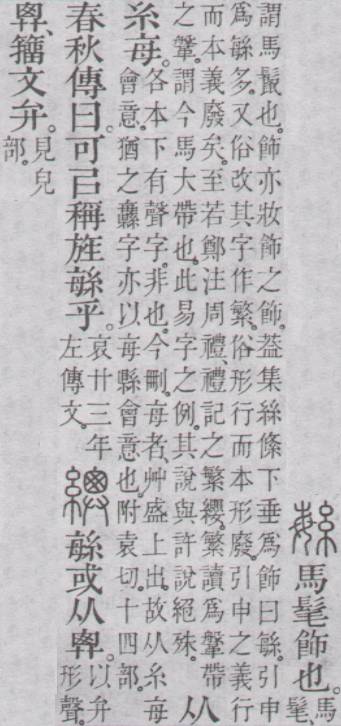 馬髦飾也。馬髦、
謂馬鬛也。飾亦妝飾之飾。葢集絲絛下垂爲飾曰緐。引申
爲緐多。又俗改其字作繁。俗形行而本形廢。引申之義行
而本義廢矣。至若鄭注周禮、禮記之繁纓。繁讀爲鞶帶
之鞶。謂今馬大帶也。此易字之例。其說與許說絕殊。从
糸每。各本下有聲字。非也。今刪。每者、艸盛上出。故从糸每會意。猶之纛字亦以每縣會意也。附袁切。十四部。
春秋傳曰。可㠯稱旌緐乎。哀廿三年左傳文。緐或从𢍍。以弁形聲。
𢍍、籒文弁。見皃部。